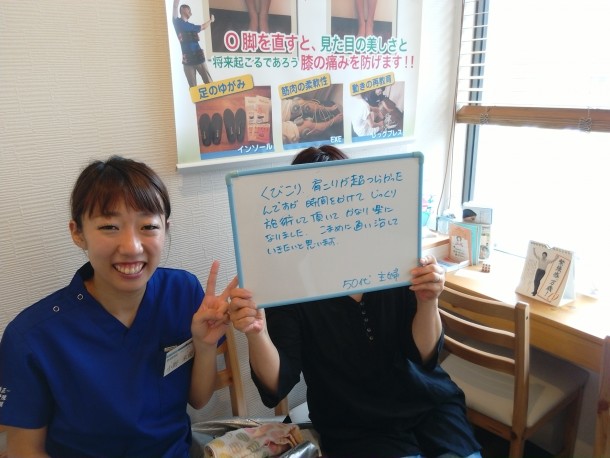 O脚を直すと、見た目の美しさと
将来起こるであろう膝の痛みを防げます!!
足のゆがみ
筋肉の柔軟性
動きの再教育
インソール
EXE
レッグプレス
くびこり 肩こりが超つらかった
んですが 時間をかけて じっくり
施術して頂いて かなり楽に
なりました。こまめに通い治して
いきたいと思います。
50代 主婦